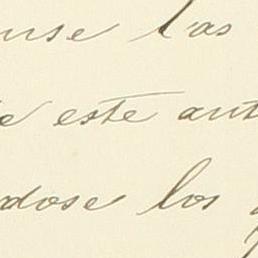 nse las
e este ant
dose los